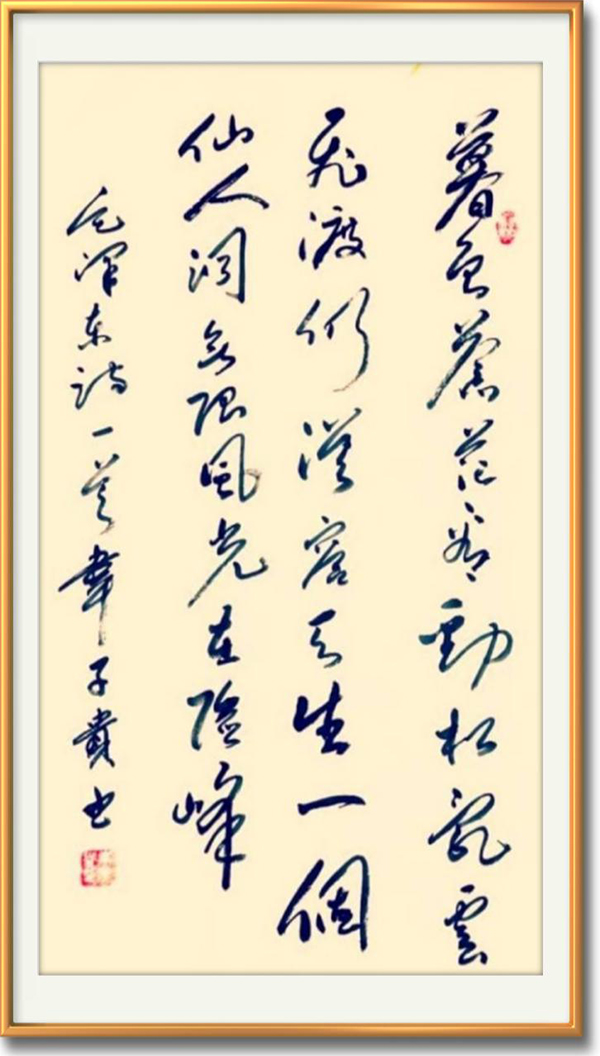 暮色蒼茫看勁松亂雲
飛渡仍從容天生一個
仙人洞無限風光在險峰
毛澤東詩一首韋子貴书